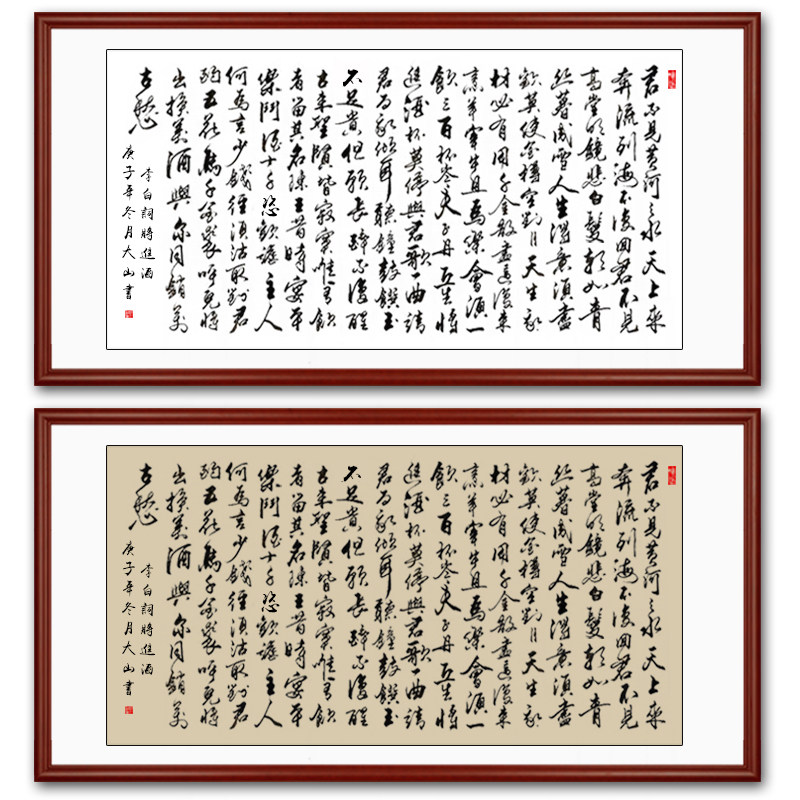 君不見黄河之水天上來
奔流到海不復回君不見
高堂明鏡悲白髮朝如青
絲暮成雪人生得意須盡
歡莫使金樽空對月天生我
材必有用千金散盡還復來
烹羊宰牛且為樂會須一
飲三百杯岑夫子丹丘生將
進酒杯莫停與君歌一曲請
君為我傾耳聽鐘鼓饌玉
不足貴但願長醉不復醒
古來聖賢皆寂寞惟有飲
者留其名陳王昔時宴平
樂斗酒十千恣歡謔主人
何為言少錢徑須沽取對君
酌五花馬千金裘呼兒將
出換美酒與尔同銷萬
古愁
李白詞將進酒
庚子年冬月大山書
君不見黄河之水天上來
奔流到海不復回君不見
高堂明鏡悲白髮朝如青
絲暮成雪人生得意須盡
歡莫使金樽空對月天生我
材必有用千金散盡還復來
烹羊宰牛且為樂會須一
飲三百杯岑夫子丹丘生將
進酒杯莫停與君歌一曲請
君為我傾耳聽鐘鼓饌玉
不足貴但願長醉不復醒
古來聖賢皆寂寞惟有飲
者留其名陳王昔時宴平
樂斗酒十千恣歡謔主人
何為言少錢徑須沽取對君
酌五花馬千金裘呼兒將
出換美酒與尔同銷萬
古愁
李白詞將進酒
庚子年冬月大山書